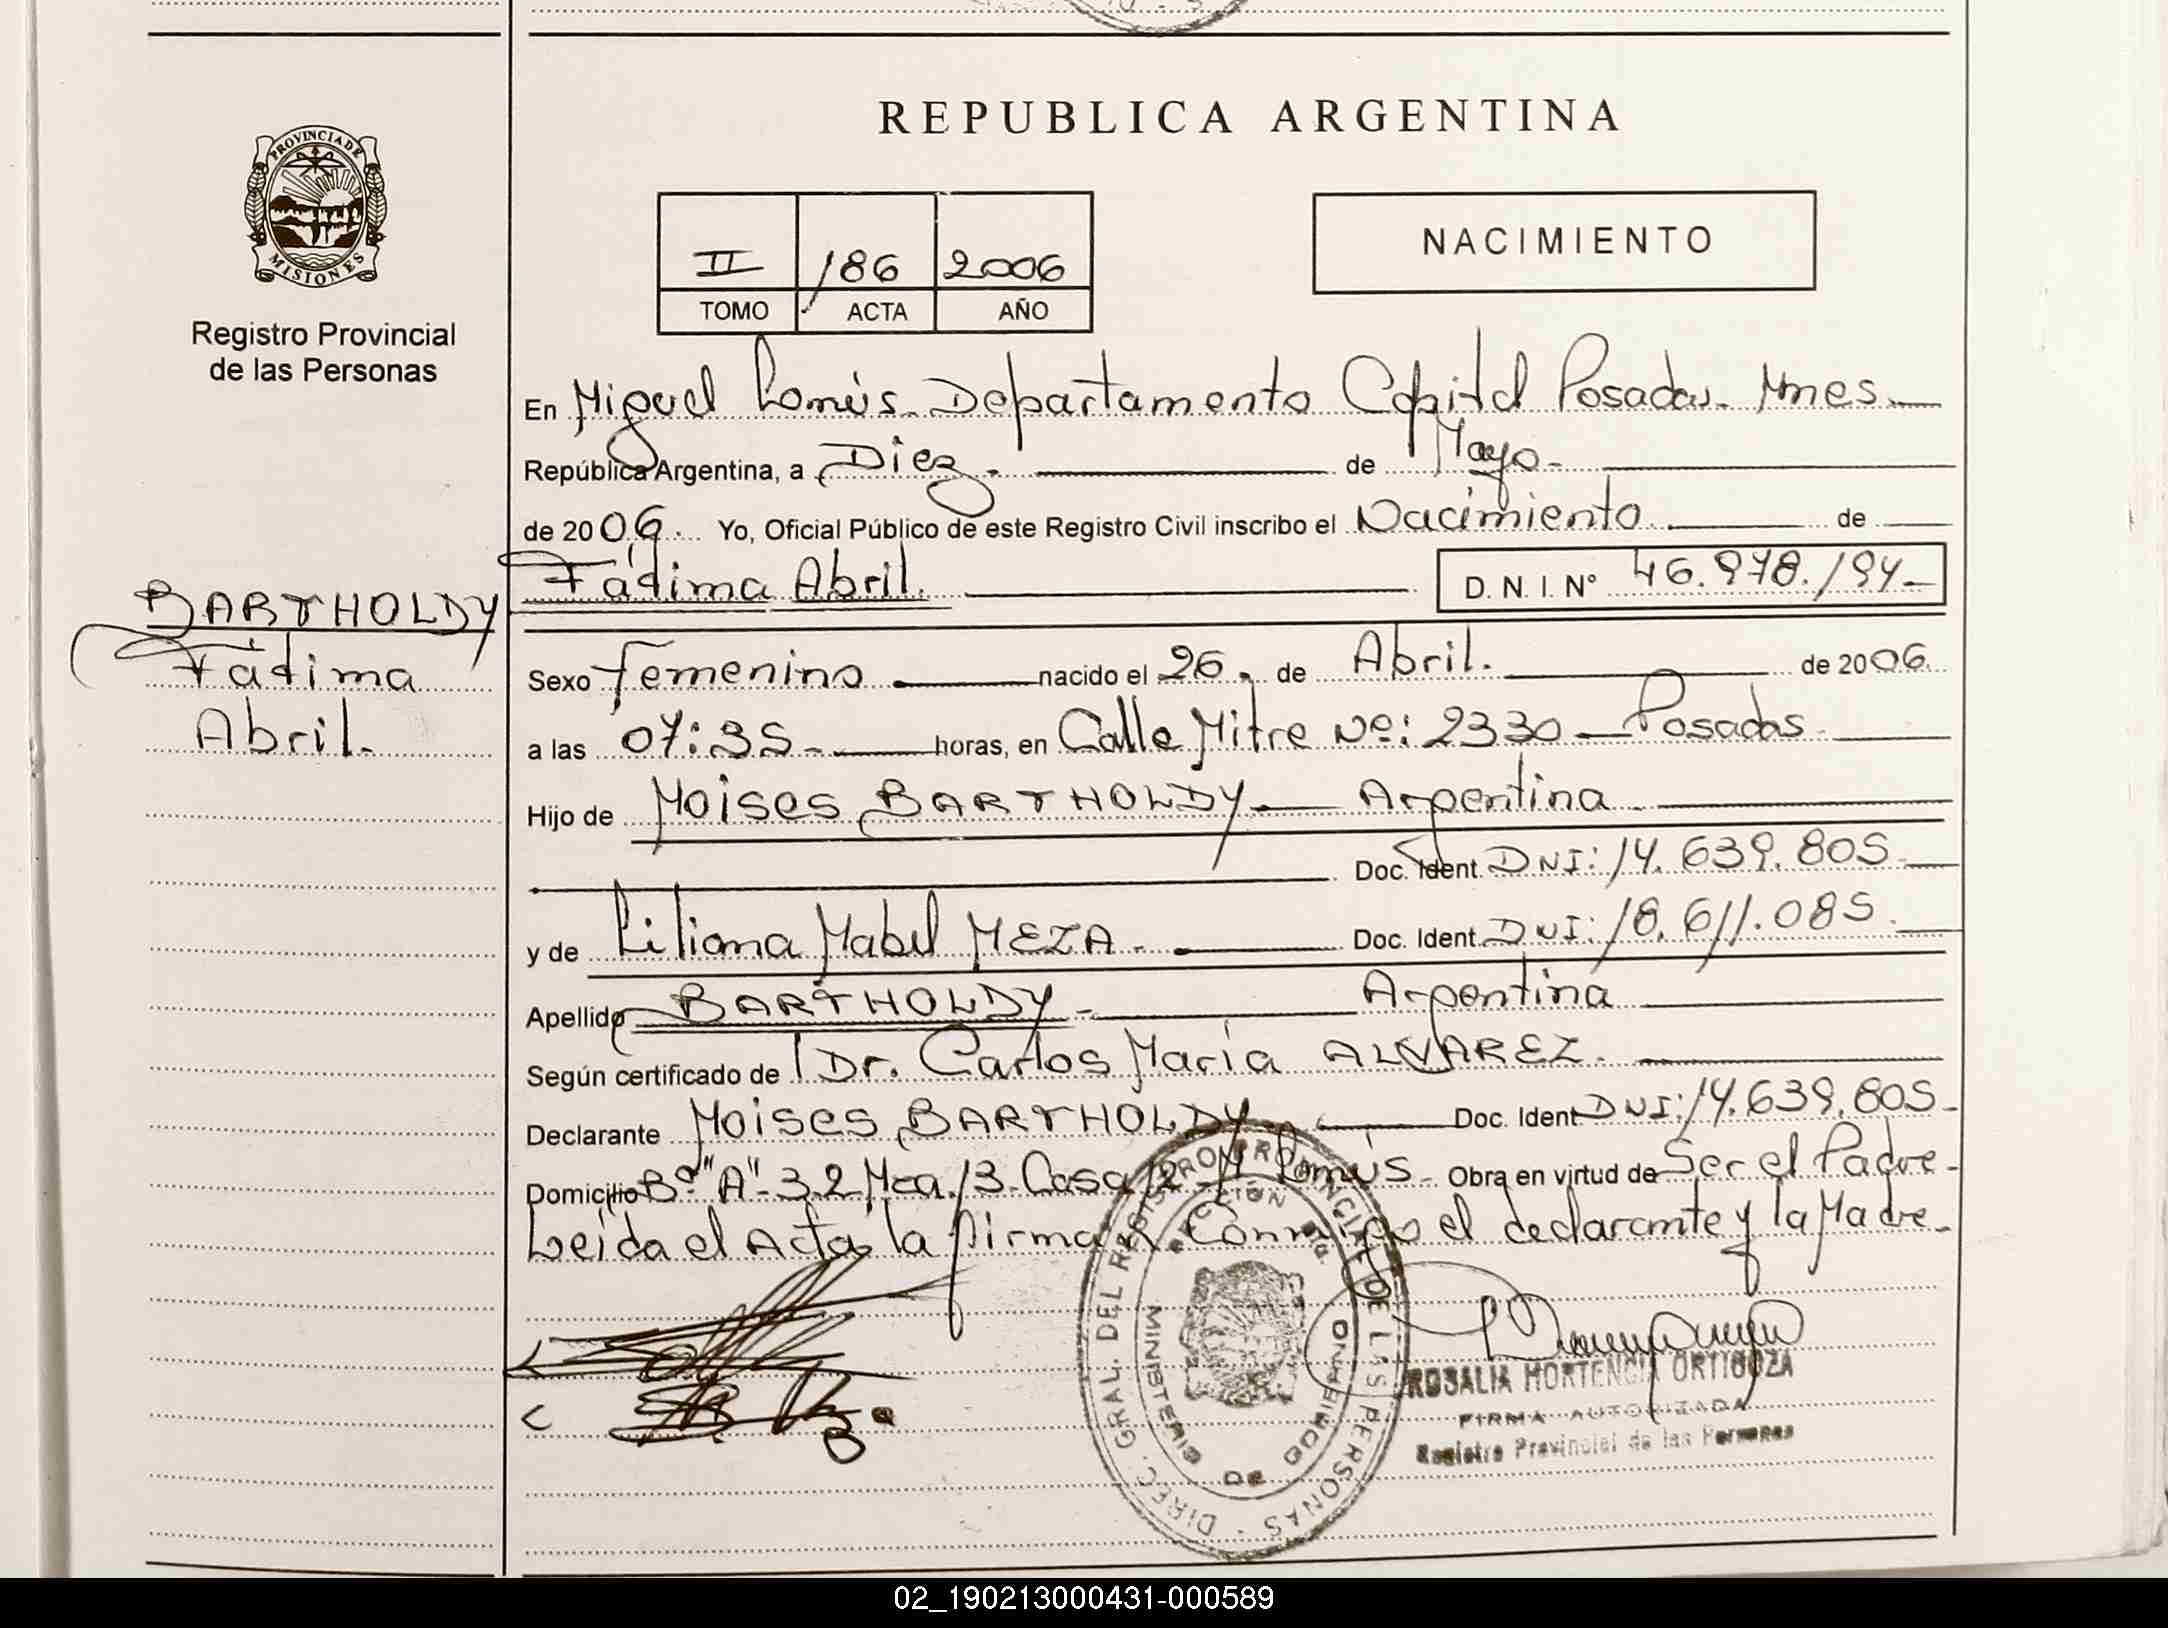 REPUBLICA ARGENTINA
PROVINCIA DE
MISIONES
Registro Provincial
de las Personas
NACIMIENTO
II 186 2006
TOMO ACTA AÑO
En Miguel Lanús. Departamento Capital Posadas. Mnes.
República Argentina, a Diez. de Mayo.
de 2006. Yo, Oficial Público de este Registro Civil inscribo el Nacimiento de
Fátima Abril. D. N. I. Nº 46.978.194
BARTHOLDY
Fátima
Abril.
Sexo Femenino nacido el 26. de Abril. de 2006.
a las 07:35 horas, en Calle Mitre Nº: 2330 Posadas
Hijo de Moises BARTHOLDY Argentina
Doc. Ident. DNI: 14.639.805
y de Liliana Mabel MEZA. Doc. Ident. DNI: 18.611.085.
Apellido BARTHOLDY Argentina
Según certificado de Dr. Carlos María ALVAREZ.
Declarante Moises BARTHOLDY Doc. Ident DNI: 14.639.805
Domicilio Bº "A" 3.2 Mza. 13 Casa 12 M Lanús. Obra en virtud de Ser el Padre
Leida el Acta, la firman conmigo el declarante y la Madre.
DIREC. GRAL. DEL REGISTRO PROVINCIAL DE LAS PERSONAS
MINISTERIO DE GOBIERNO
ROSALIA HORTENCIA ORTIGOZA
FIRMA AUTORIZADA
Registro Provincial de las Personas
02_190213000431-000589